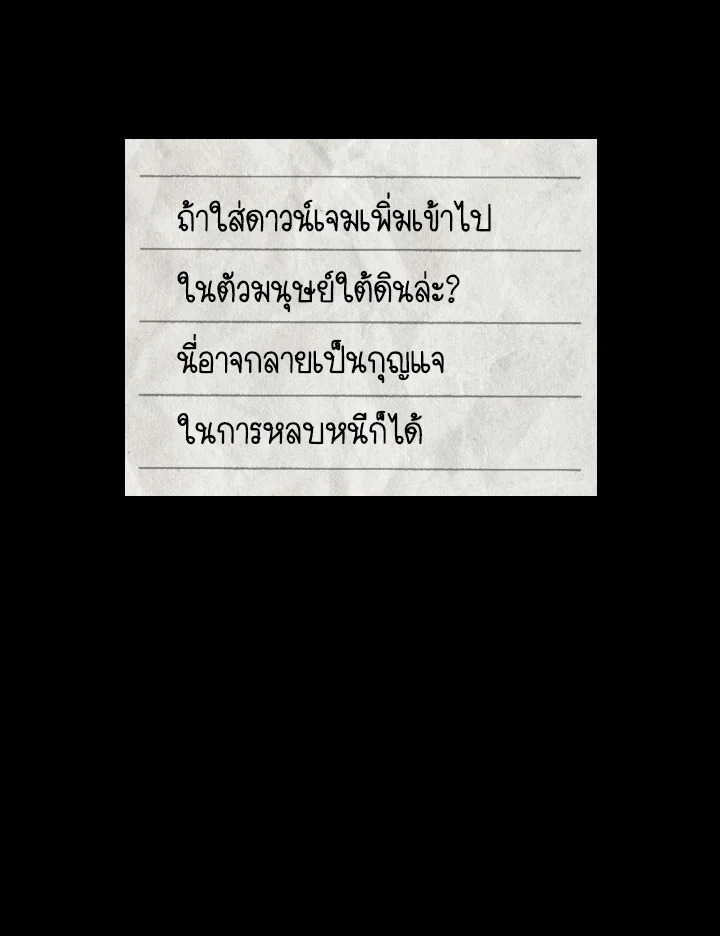 ถ้าใส่ดาวน์เจมเพิ่มเข้าไป
ในตัวมนุษย์ใต้ดินล่ะ?
นี่อาจกลายเป็นกุญแจ
ในการหลบหนีก็ได้